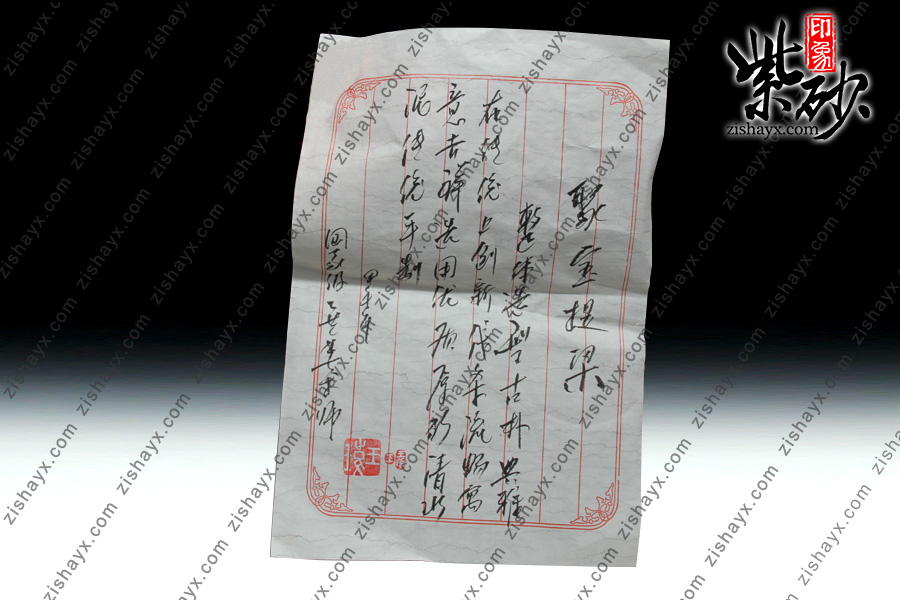 聚宝提梁
整体造型古朴典雅
在传统上创新线条流畅寓
意吉祥选用优质原矿清水
泥传统手制
甲午年
国家级工艺美术师
印象
紫砂
zishayx.com